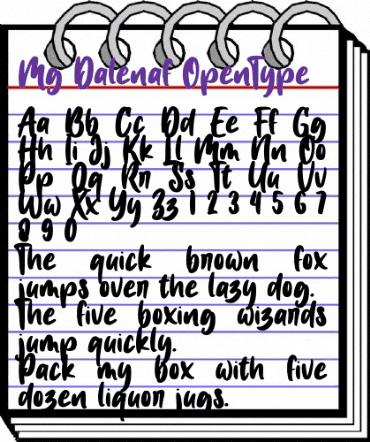 Mg Dalenaf OpenType
Aa Bb Cc Dd Ee Ff Gg
Hh Ii Jj Kk Ll Mm Nn Oo
Pp Qq Rr Ss Tt Uu Vv
Ww Xx Yy Zz 1 2 3 4 5 6 7
8 9 0
The quick brown fox
jumps over the lazy dog.
The five boxing wizards
jump quickly.
Pack my box with five
dozen liquor jugs.